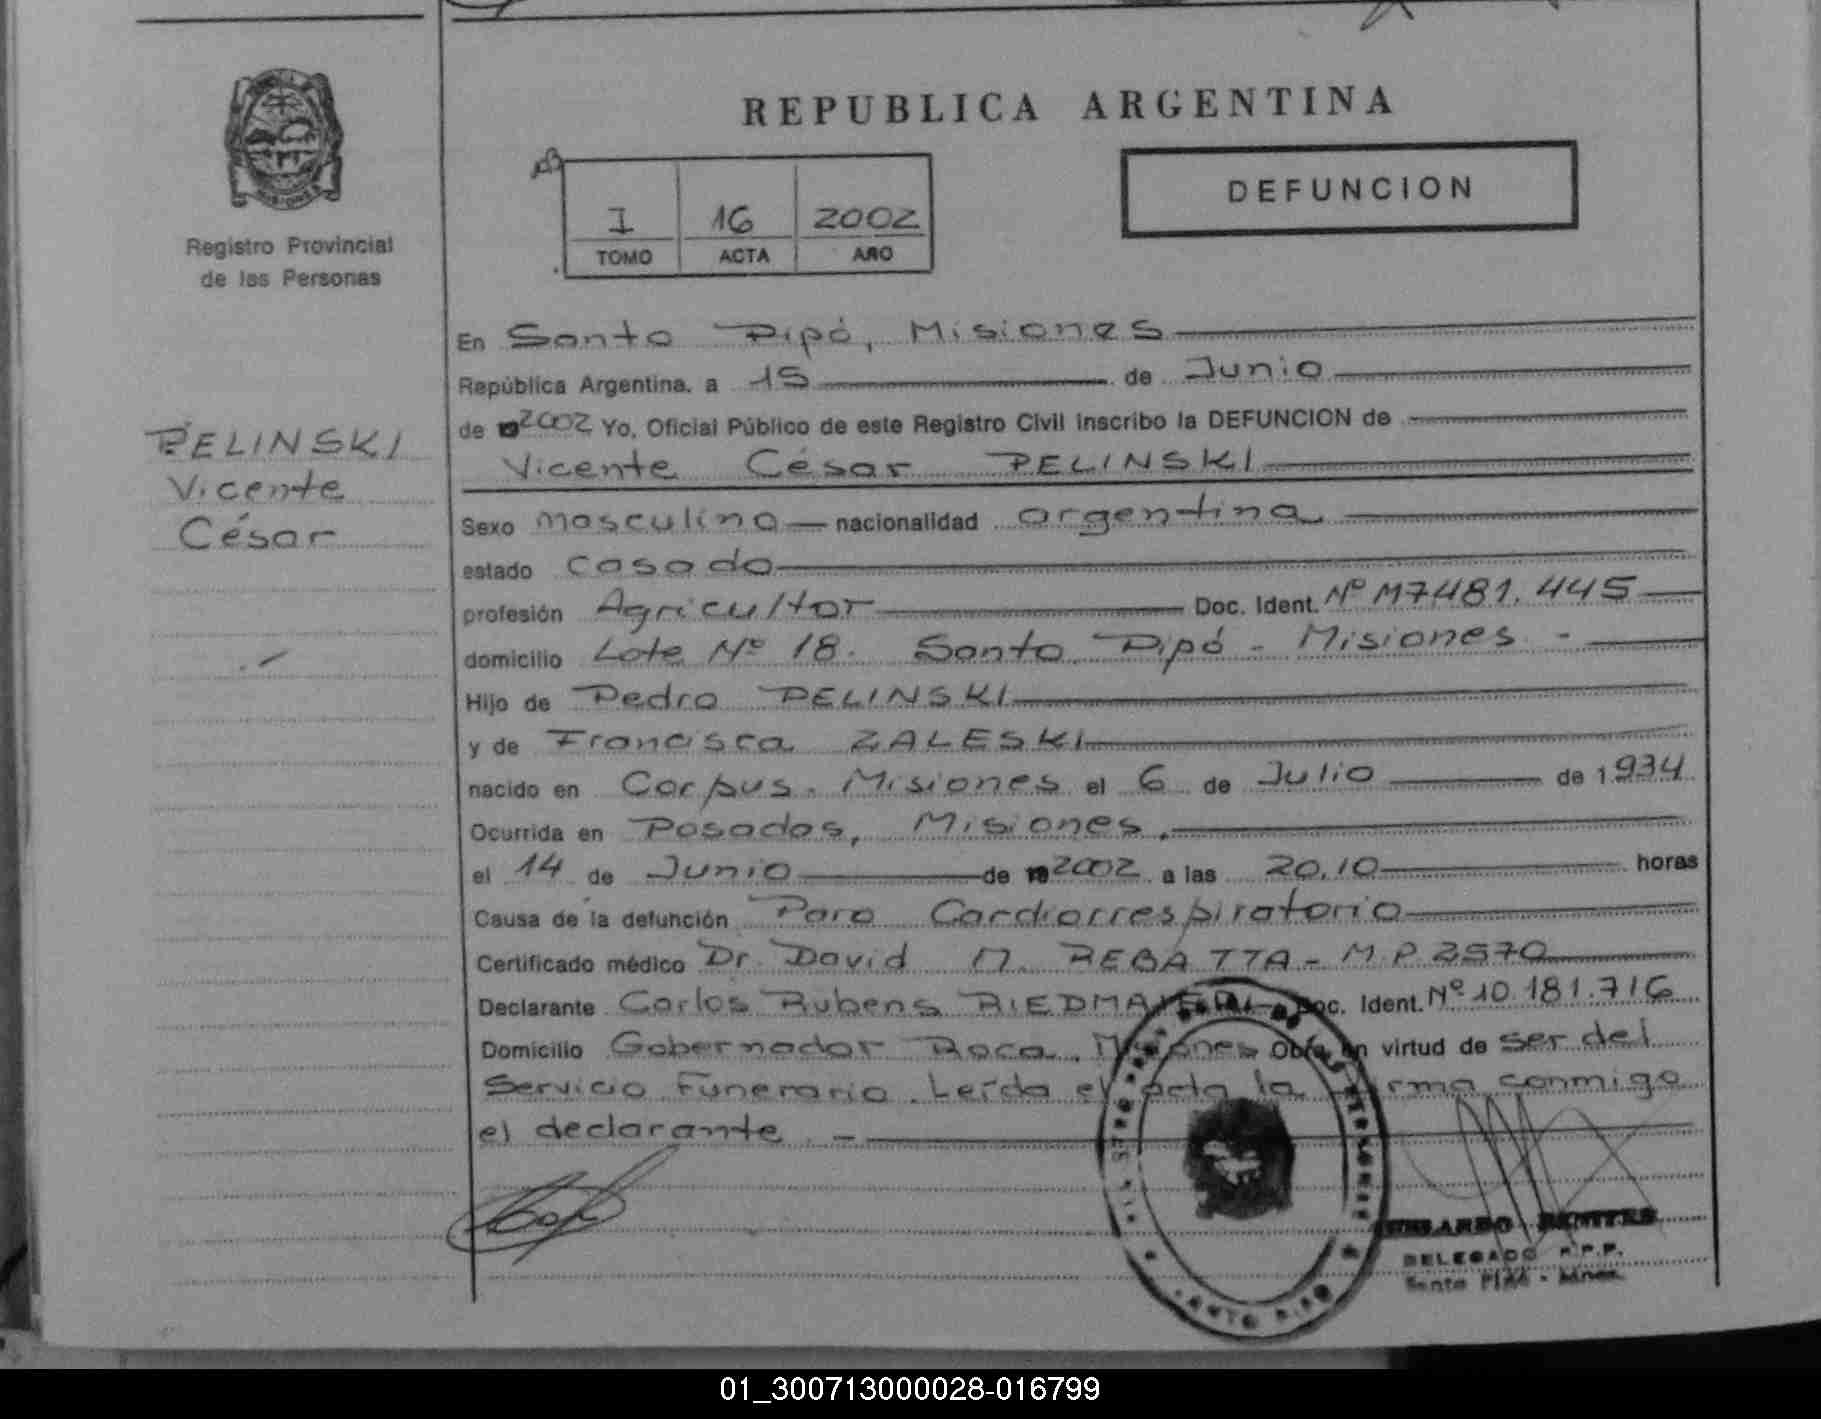 REPUBLICA ARGENTINA
DEFUNCION
I 16 2002
TOMO ACTA AÑO
Registro Provincial
de las Personas
PELINSKI
Vicente
César
En Santo Pipó, Misiones
República Argentina, a 15 de Junio
de 2002 Yo, Oficial Público de este Registro Civil inscribo la DEFUNCION de
Vicente César PELINSKI
Sexo masculino nacionalidad argentina
estado casado
profesión Agricultor Doc. Ident. Nº M7481.445
domicilio Lote Nº 18. Santo Pipó - Misiones -
Hijo de Pedro PELINSKI
y de Francisca ZALESKI
nacido en Corpus. Misiones el 6 de Julio de 1.934
Ocurrida en Posadas, Misiones.
el 14 de Junio de 2002 a las 20.10 horas
Causa de la defunción Paro Cardiorrespiratorio
Certificado médico Dr. David M. REBATTA - M.P 2570
Declarante Carlos Rubens Doc. Ident. Nº 10.181.716
Domicilio Gobernador Roca. Misiones Obra en virtud de ser del
Servicio Funerario. Leída el acta la firma conmigo
el declarante. -
BENITEZ
DELEGADO R.P.P.
Santo Pipó - Mnes.
SANTO PIPO
01_300713000028-016799